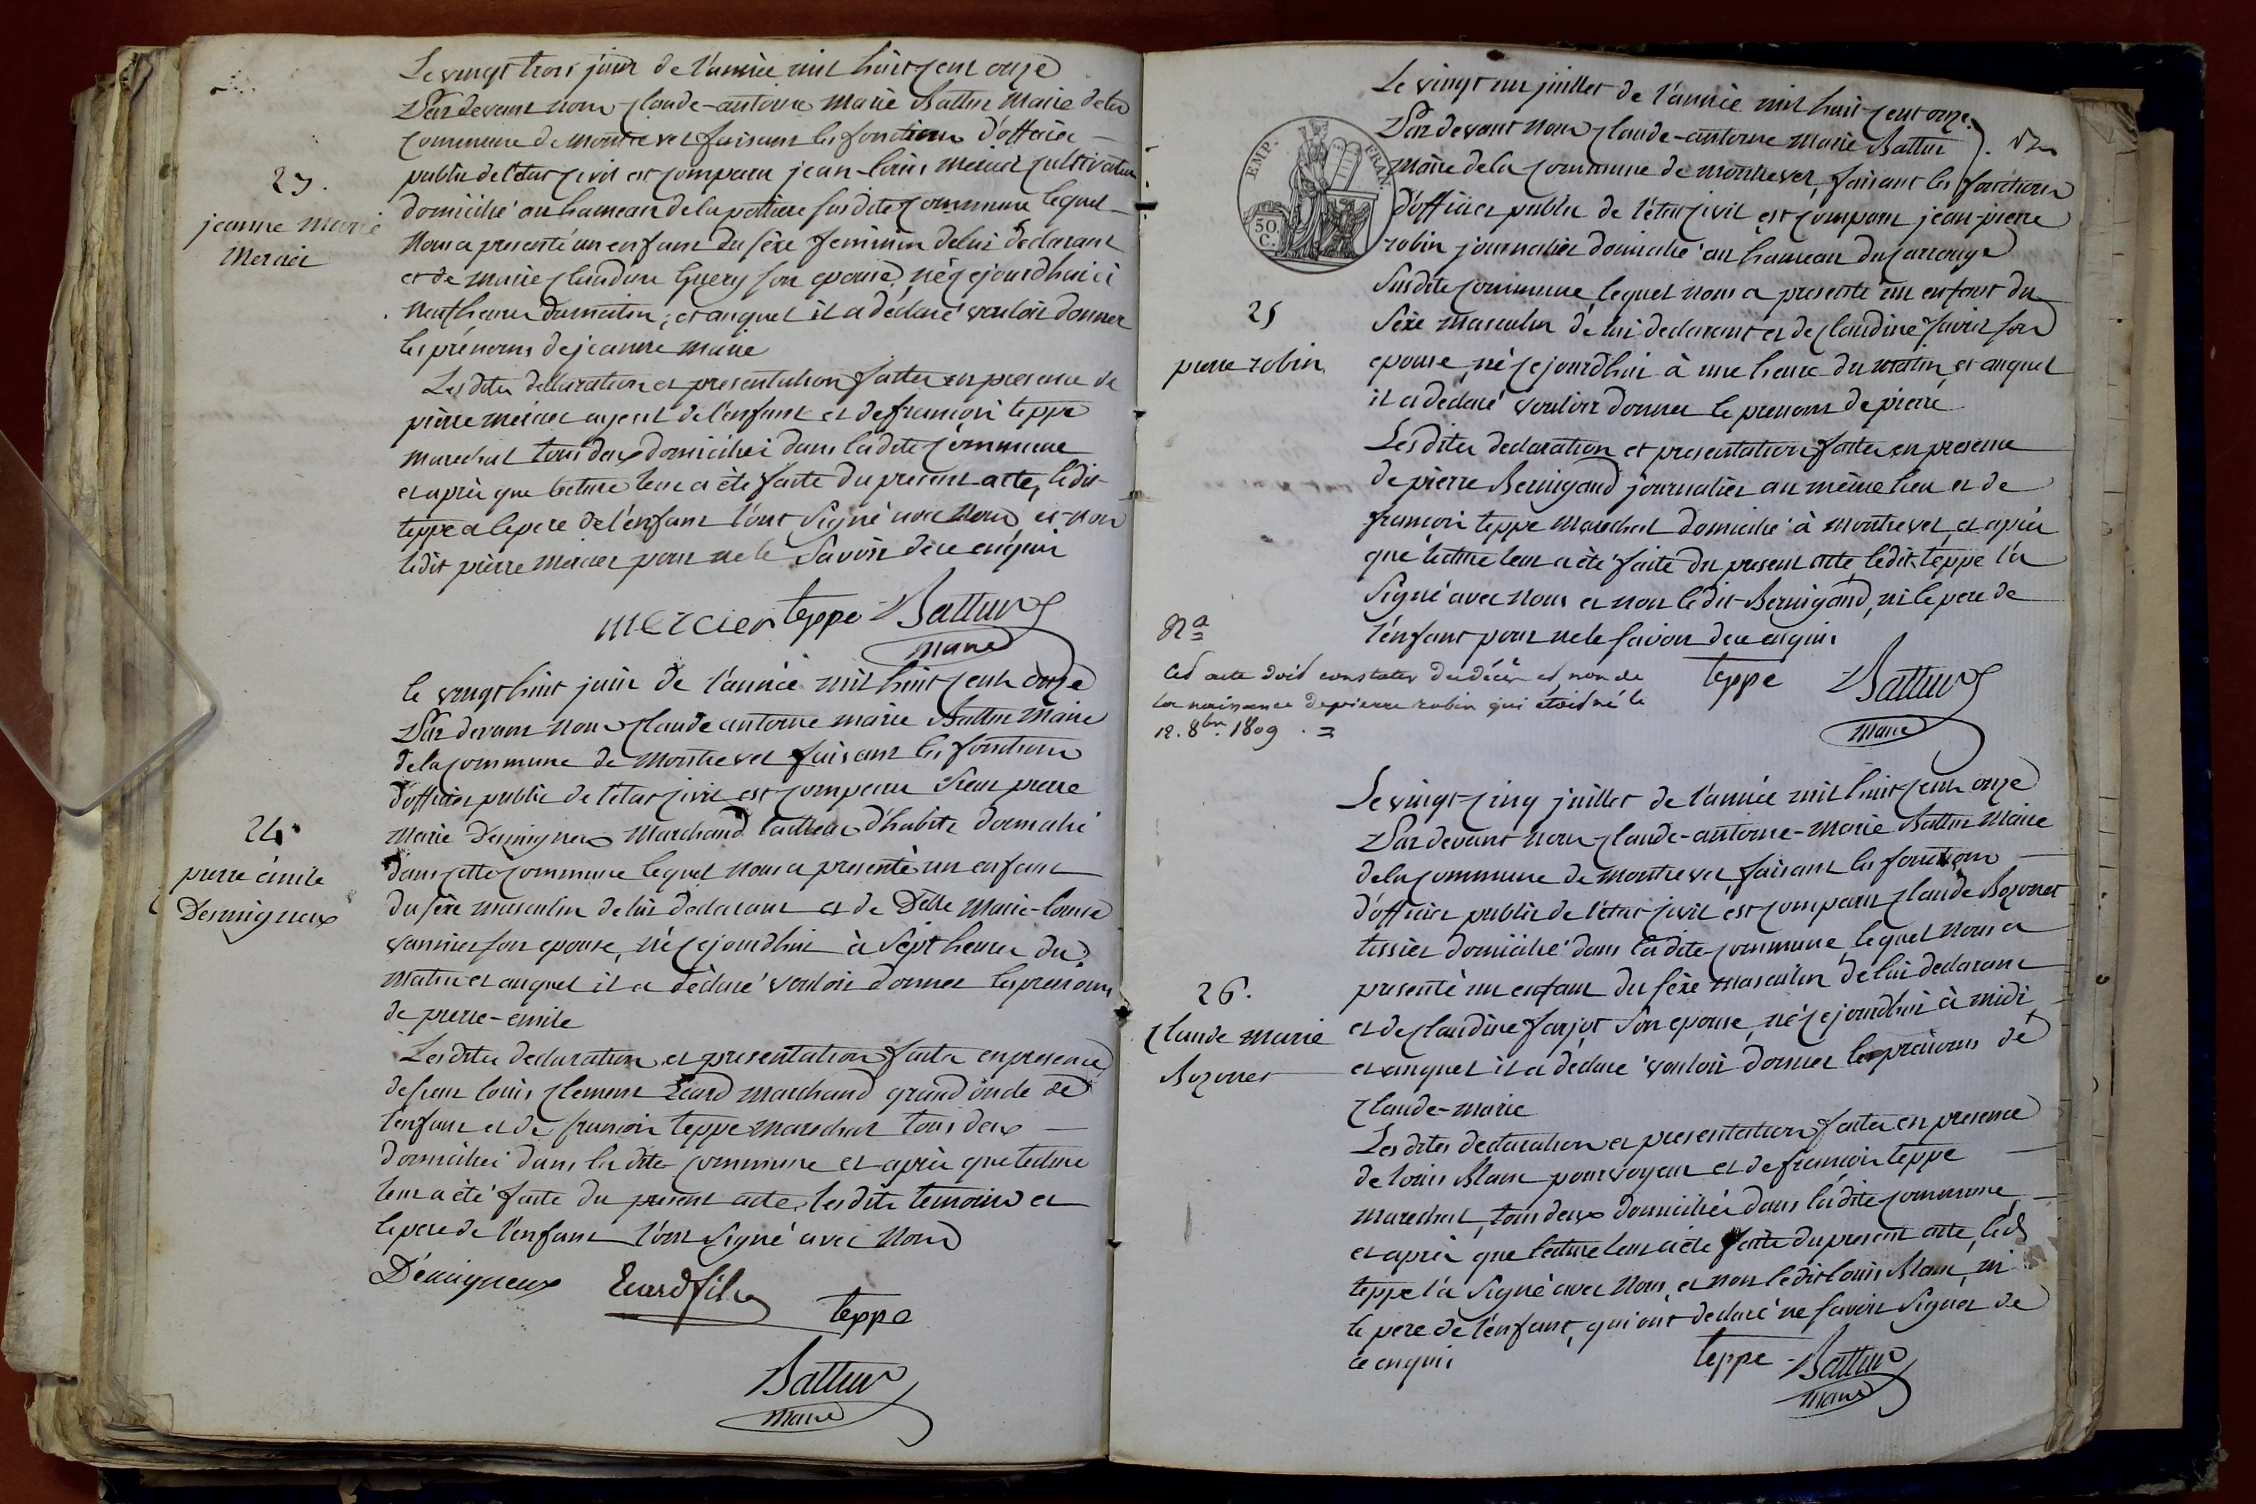 Le vingt trois juin de l'année mil huit cent onze
Par devant nous Claude-antoine Marie Battur Maire de la
Commune de Montrevel faisant les fonctions d'officier
public de l'état civil est comparu jean-louis Mercier cultivateur
23.
domicilié au hameau de la potiere susdite commune lequel
jeanne Marie
Mercier
Nous a presenté un enfant du sèxe feminin de lui declarant
et de Marie Claudine Guery son epouse, né cejourdhui à
neuf heures du matin; et auquel il a déclaré vouloir donner
les prénoms de jeanne marie
Lesdites declaration et presentation faites en presence de
pierre mercier ayeul de l'enfant et de francois teppe
marechal tous deux domiciliés dans ladite Commune
et après que lecture leur a été faite du present acte, ledit
teppe et le pere de l'enfant l'ont signé avec Nous et non
ledit pierre mercier pour ne le savoir de ce enquis
mercier teppe Battur
maire
le vingt huit juin de l'année mil huit cent onze
Par devant nous Claude antoine marie Battur Maire
de la commune de Montrevel faisant les fonctions
d'officier public de l'état civil est comparu sieur pierre
24.
pierre émile
Desmigneux
Marie Desmigneux Marchand tailleur d'habits domicilié
dans cette commune lequel nous a presenté un enfant
du sèxe masculin de lui declarant et de Delle Marie-louise
vannier son epouse, né cejourdhui à sept heures du
matin et auquel il a déclaré vouloir donner les prenoms
de pierre-emile
Lesdites declaration et presentation faites en presence
de sieur louis Clement Ecard marchand grand oncle de
l'enfant et de francois teppe marechal tous deux
domiciliés dans ladite commune et après que lecture
leur a été faite du present acte, lesdits temoins et
le pere de l'enfant l'ont signé avec Nous
Démigneux Ecard fils teppe
Battur
maire
Le vingt un juillet de l'année mil huit cent onze
Par devant nous Claude-antoine Marie Battur
EMP. FRAN.
50. C.
Maire de la commune de Montrevel, faisant les fonctions
d'officier public de l'état civil est comparu jean-pierre
robin journalier domicilié au hameau du Carrouge
susdite commune, lequel nous a presenté un enfant du
25
pierre robin
sèxe masculin de lui declarant et de Claudine son
epouse, né cejourdhui à une heure du matin, et auquel
il a déclaré vouloir donner le prenom de pierre
Lesdites declaration et presentation faites en presence
de pierre Bernigaud journalier au même lieu et de
francois teppe marechal domicilié à Montrevel, et après
que lecture leur a été faite du present acte, ledit teppe l'a
signé avec nous et non ledit Bernigaud, ni le pere de
l'enfant pour ne le savoir de ce enquis
teppe Battur
maire
Na
Cet acte doit constater du décès et non de
la naissance de pierre robin qui étoit né le
12. 8bre 1809.
Le vingt-cinq juillet de l'année mil huit cent onze
Par devant nous Claude-antoine-Marie Battur Maire
de la commune de Montrevel, faisant les fonctions
d'officier public de l'état civil est comparu Claude Bozonet
tissier domicilié dans ladite commune, lequel nous a
26.
Claude marie
Bozonet
presenté un enfant du sèxe masculin de lui declarant
et de Claudine farjot son epouse, né cejourdhui à midi
et auquel il a déclaré vouloir donner les prénoms de
Claude-marie
Lesdites declaration et presentation faites en presence
de louis Blanc pourvoyeur et de francois teppe
marechal, tous deux domiciliés dans ladite commune,
et après que lecture leur a été faite du present acte, led.
teppe l'a signé avec nous, et non ledit louis Blanc, ni
le pere de l'enfant, qui ont declaré ne savoir signer de
ce enquis
teppe Battur
maire